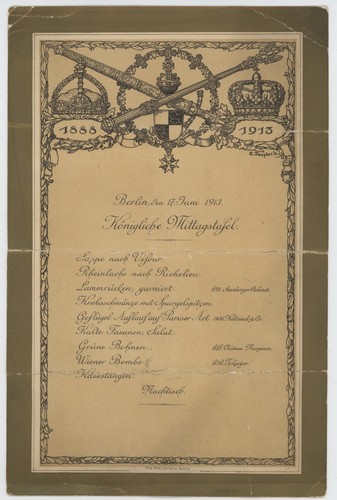 1888
1913
Berlin, den 17. Juni 1913.
Königliche Mittagstafel.
Suppe nach Vefour.
Rheinlachs nach Richelieu.
Lammrücken, garniert.
Krebsschwänze mit Spargelspitzen.
Geflügel-Auflauf auf Pariser Art.
Kalte Fasanen, Salat.
Grüne Bohnen.
Château Margaux
Wiener Bombe
Tokayer
Käsestangen.
Nachtisch.